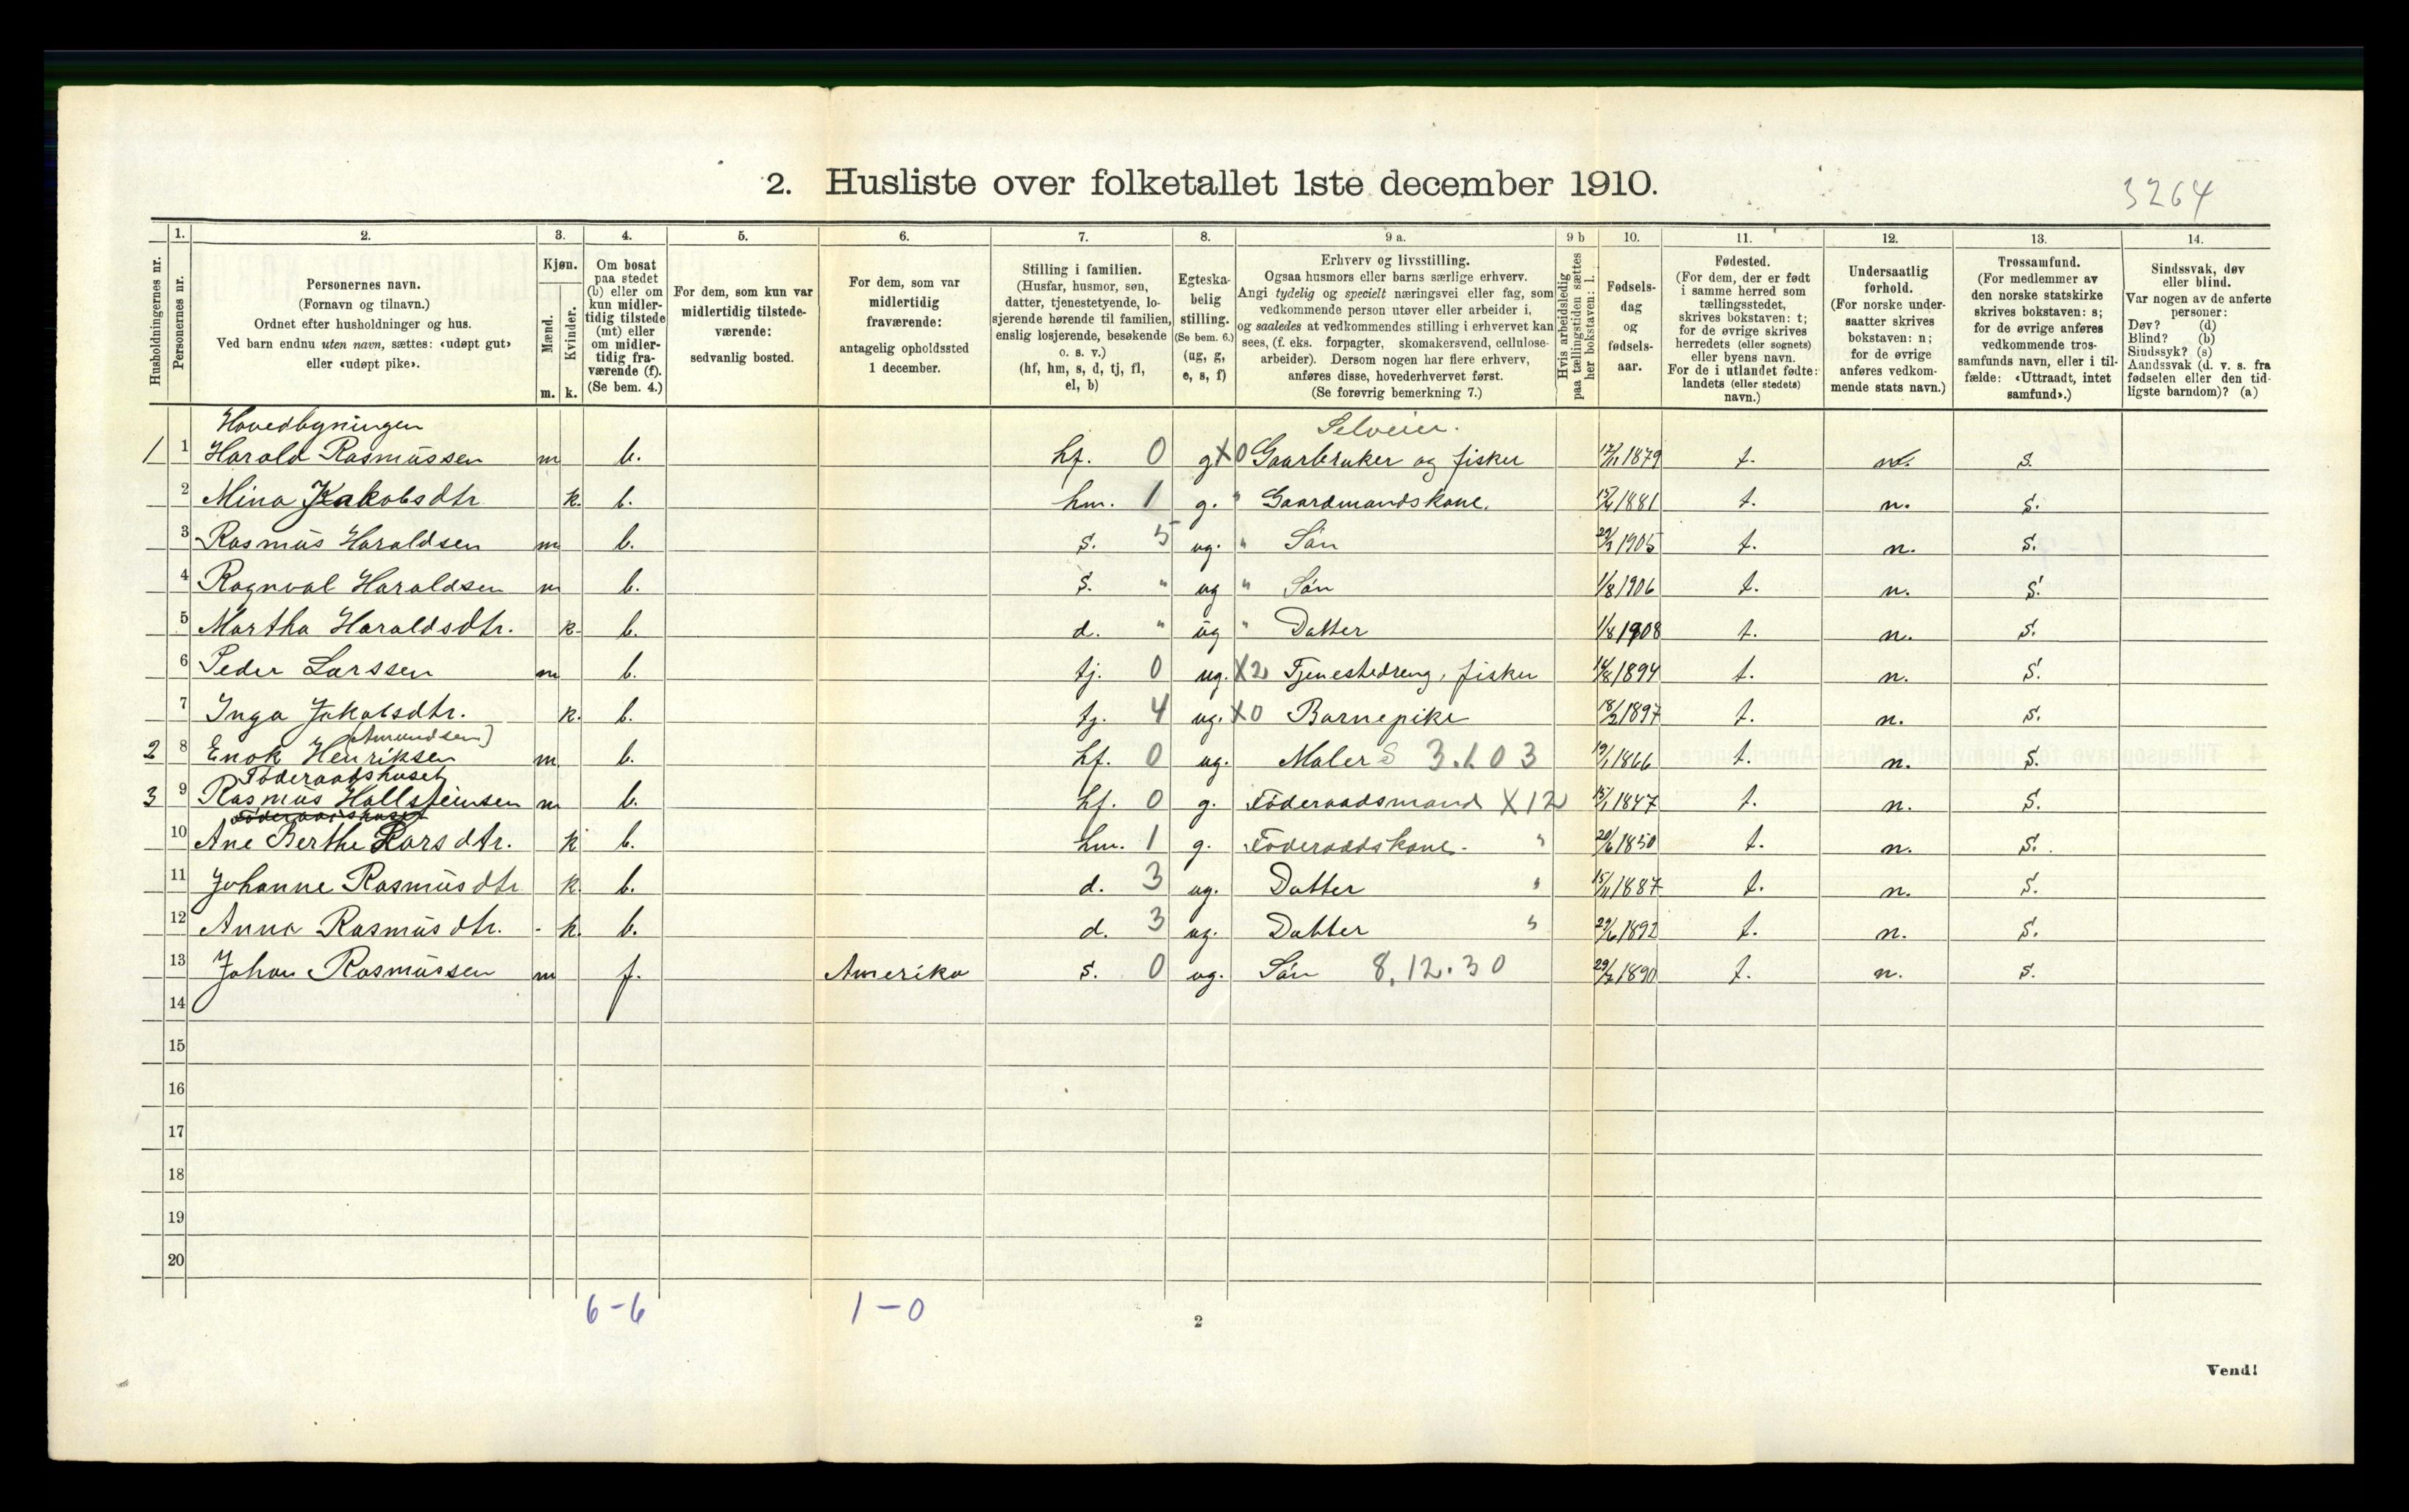 2. Husliste over folketallet 1ste december 1910.
3264
Husholdningernes nr.
1. Personernes nr.
2. Personernes navn.
(Fornavn og tilnavn.)
Ordnet efter husholdninger og hus.
Ved barn endnu uten navn, sættes: «udøpt gut»
eller «udøpt pike».
3. Kjøn.
Mænd. m.
Kvinder. k.
4. Om bosat
paa stedet
(b) eller om
kun midler-
tidig tilstede
(mt) eller
om midler-
tidig fra-
værende (f).
(Se bem. 4.)
5. For dem, som kun var
midlertidig tilstede-
værende:
sedvanlig bosted.
6. For dem, som var
midlertidig
fraværende:
antagelig opholdssted
1 december.
7. Stilling i familien.
(Husfar, husmor, søn,
datter, tjenestetyende, lo-
sjerende hørende til familien,
enslig losjerende, besøkende
o. s. v.)
(hf, hm, s, d, tj, fl,
el, b)
8. Egteska-
belig
stilling.
(Se bem. 6.)
(ug, g,
e, s, f)
9 a. Erhverv og livsstilling.
Ogsaa husmors eller barns særlige erhverv.
Angi tydelig og specielt næringsvei eller fag, som
vedkommende person utøver eller arbeider i,
og saaledes at vedkommendes stilling i erhvervet kan
sees, (f. eks. forpagter, skomakersvend, cellulose-
arbeider). Dersom nogen har flere erhverv,
anføres disse, hovederhvervet først.
(Se forøvrig bemerkning 7.)
9 b Hvis arbeidsledig
paa tællingstiden sættes
her bokstaven: l.
10. Fødsels-
dag
og
fødsels-
aar.
11. Fødested.
(For dem, der er født
i samme herred som
tællingsstedet,
skrives bokstaven: t;
for de øvrige skrives
herredets (eller sognets)
eller byens navn.
For de i utlandet fødte:
landets (eller stedets)
navn.)
12. Undersaatlig
forhold.
(For norske under-
saatter skrives
bokstaven: n;
for de øvrige
anføres vedkom-
mende stats navn.)
13. Trossamfund.
(For medlemmer av
den norske statskirke
skrives bokstaven: s;
for de øvrige anføres
vedkommende tros-
samfunds navn, eller i til-
fælde: «Uttraadt, intet
samfund».)
14. Sindssvak, døv
eller blind.
Var nogen av de anførte
personer:
Døv? (d)
Blind? (b)
Sindssyk? (s)
Aandssvak (d. v. s. fra
fødselen eller den tid-
ligste barndom)? (a)
Hovedbygningen Selveier.
1 1 Harold Rasmussen m b. hf. 0 g X0 Gaarbruker og fisker 1879 t. n. s.
2 Mina Jakobsdtr k. b. hm. 1 g. " Gaardmandskone. 1881 t. n. s.
3 Rasmus Haraldsen m b. s. 5 ug. " Sön 1905 t. n. s.
4 Ragnval Haraldsen m b. s. " ug " Sön 1/8 1906 t. n. s.
5 Martha Haraldsdtr. k. b. d. " ug " Datter 1/8 1908 t. n. s.
6 Peder Larssen m b. tj. 0 ug. X2 Tjenestedreng, fisker 14/8 1894 t. n. s.
7 Inga Jakobsdtr. k. b. tj. 4 ug. X0 Barnepike 18/2 1897 t. n. s.
(Amundsen)
2 8 Enok Henriksen m b. hf. 0 ug. Maler S 3.103 19/1 1866 t. n. s.
Föderaadshuset
3 9 Rasmus Hallsteinsen m b. hf. 0 g. Föderaadsmand X12 15/1 1847 t. n. s.
Föderaadshuset
10 Ane Berthe Larsdtr. k b. hm. 1 g. Föderaadskone. " 20/6 1850 t. n. s.
11 Johanne Rasmusdtr k. b. d. 3 ug. Datter " 15/11 1887 t. n. s.
12 Anna Rasmusdtr. - k. b. d. 3 ug. Datter " 29/6 1892 t. n. s.
13 Johan Rasmussen m f. Amerika s. 0 ug. Sön 8.12.30 1890 t. n. s.
14
15
16
17
18
19
20
6-6 1-0
2
Vend!